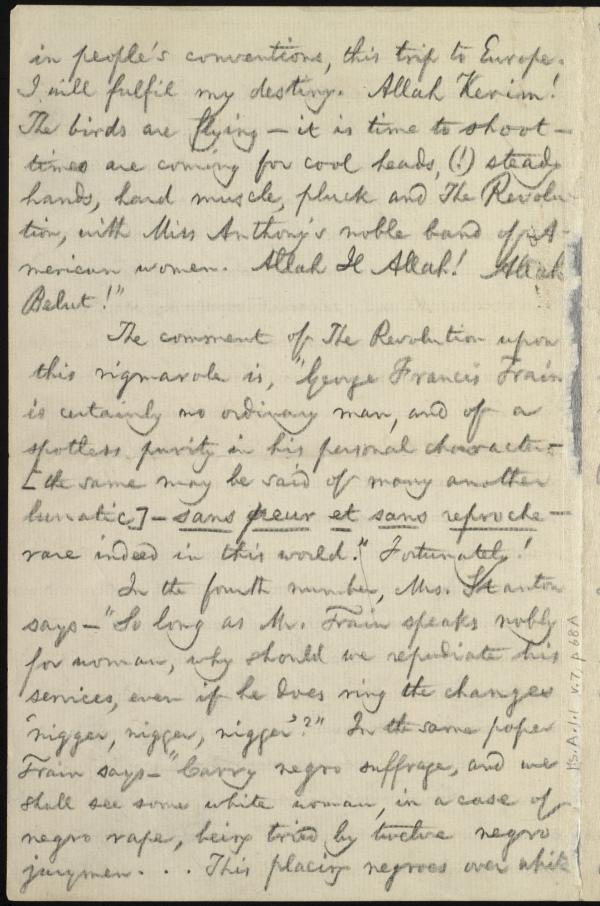 in people's conventions, this trip to Europe.
I will fulfil my destiny. Allah Kerim!
The birds are flying — it is time to shoot —
times are coming for cool heads, (!) steady
hands, hard muscle, pluck and The Revolu-
tion, with Miss Anthony's noble band of A-
merican women. Allah Il Allah! Allah
Belut!"
The comment of The Revolution upon
this rigmarole is, "George Francis Train
is certainly no ordinary man, and of a
spotless purity in his personal character —
[the same may be said of many another
lunatic] — sans peur et sans reproche —
rare indeed in this world." Fortunately!
In the fourth number, Mrs. Stanton
says — "So long as Mr. Train speaks nobly
for woman, why should we repudiate his
services, even if he does ring the changes
'nigger, nigger, nigger'?" In the same paper
Train says — "Carry negro suffrage, and we
shall see some white woman, in a case of
negro rape, being tried by twelve negro
jurymen. . . This placing negroes over white
Ms. A. 1. 1 v. 7, p 68A